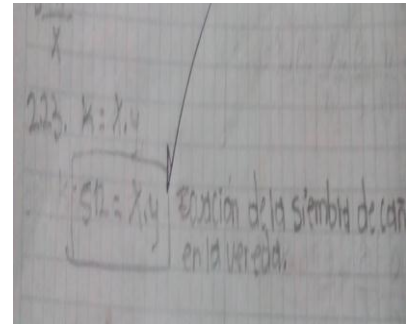 x
223. K = x.y
512 = x.y Ecuación de la siembra de cañ
en la vereda.